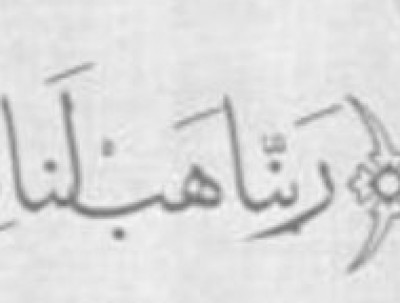 رَبَّنَا هَبْ لَنَا